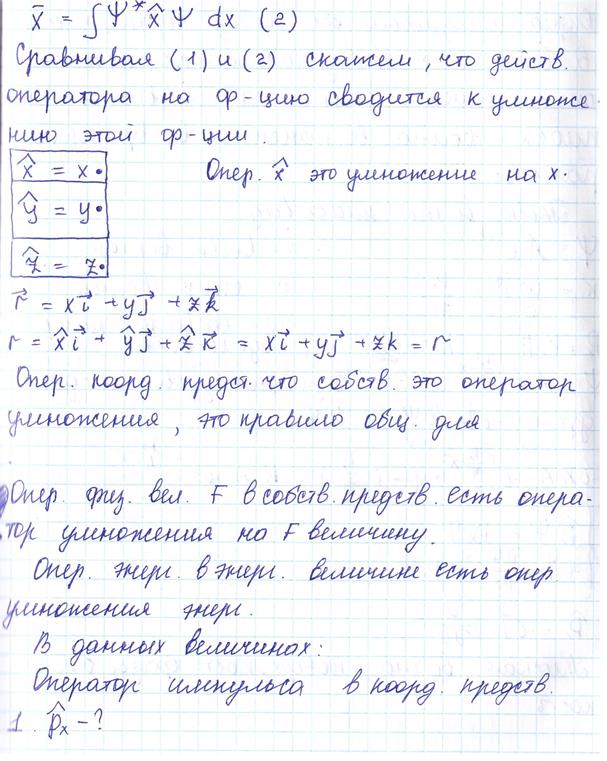 x̄ = ∫ Ψ* x̂ Ψ dx (2)
Сравнивая (1) и (2) скажем, что действ.
оператора на ф-цию сводится к умноже-
нию этой ф-ции.
x̂ = x• Опер. x̂ это умножение на x.
ŷ = y•
ẑ = z•
r⃗ = xi⃗ + yj⃗ + zk⃗
r = x̂i⃗ + ŷj⃗ + ẑk⃗ = xi⃗ + yj⃗ + zk = r
Опер. коорд. предст. что собств. это оператор
умножения, это правило общ. для
Опер. физ. вел. F в собств. предств. есть опера-
тор умножения на F величину.
Опер. энерг. в энерг. величине есть опер
умножения энерг.
В данных величинах:
Оператор импульса в коорд. предств.
1. p̂x - ?